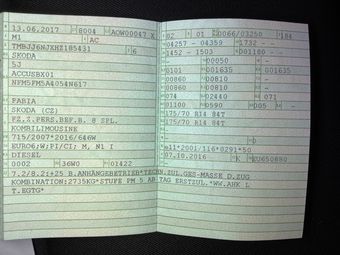 13.06.2017 8004 AOW00047 X
M1 AC
TMBJJ6NJXHZ185431 6
SKODA
5J
ACCUSBX01
NFM5FM5A4054N617
FABIA
SKODA (CZ)
FZ.Z.PERS.BEF.B. 8 SPL.
KOMBILIMOUSINE
715/2007*2016/646W
EURO6;W;PI/CI; M, N1 I
DIESEL
0002 36W0 01422
02 01 0066/03250 184
04257 - 04359 1732 - -
1452 - 1503 001180 - -
- 00050 - -
0101 001635 001635
00860 00810 -
00860 00810 -
074 02440 071
01100 0590 005 -
175/70 R14 84T
175/70 R14 84T
-
e11*2001/116*0291*50
07.10.2016 K
7.2/8.2:+25 B.ANHÄNGEBETRIEB*TECHN.ZUL.GES-MASSE D.ZUG
KOMBINATION:2735KG*STUFE PM 5 AB TAG ERSTZUL.*WW.AHK L
T.EGTG*